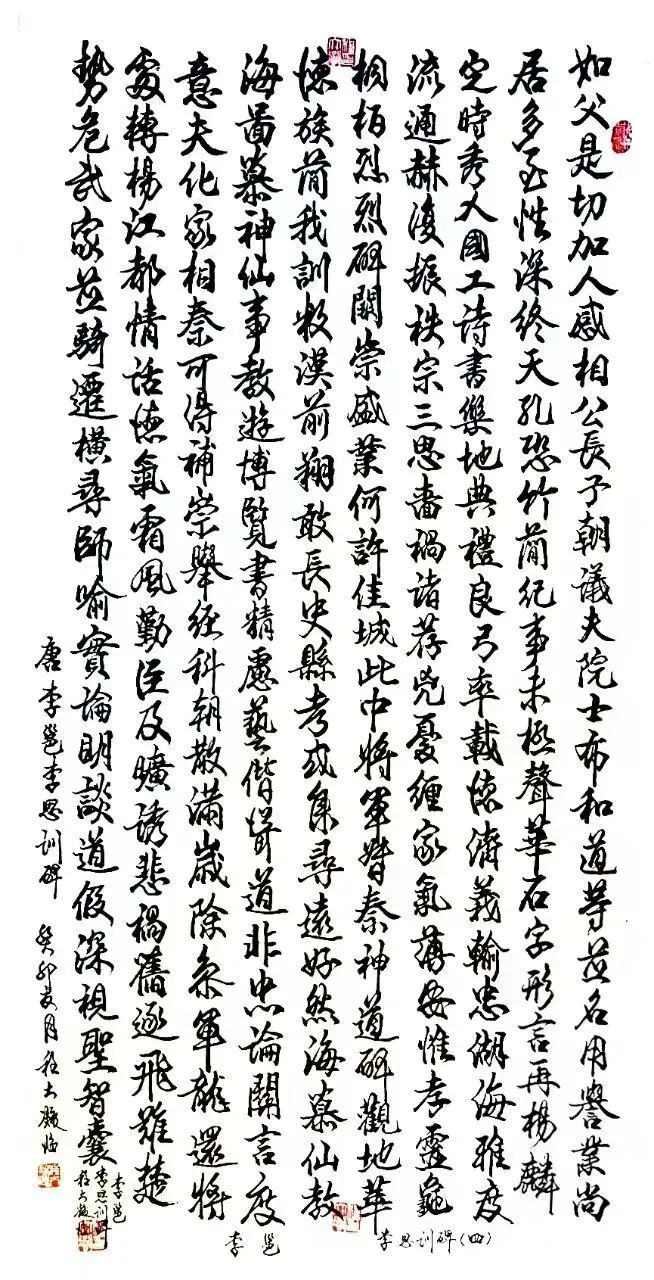 如父是切加人感相公長子朝議夫院士布和道等並名用譽業尚
居多至性深終天孔恐竹簡紀事未極聲華石字形言再楊麟
定時秀人國工詩書樂地典禮良弓率載懷濟義輸忠湖海雅度
流通赫復振秩宗三思嗇禍諸荐兇憂纏家氣薄安惟孝靈龜
桐柏烈烈碑闕崇盛業何許佳城此中將軍督秦神道碑觀地華
懷族簡我訓牧漠前翔敢長史縣考或集尋遠好然海慕仙教
海圖慕神仙事教遊博覽書精慮藝偕聳道非忠論關言度
意夫化家相秦可得補崇舉經科朝散滿歲除參軍龍還將
處轉楊江都情話懷氣霜風勤臣及曠誘悲禍舊逐飛難楚
勢危武家並騎遷橫尋師喻實論明談道假深視聖智囊
唐李邕李思訓碑 癸卯 月程大 臨
李邕
李思訓碑
程大 臨
李邕
李思訓碑(四)